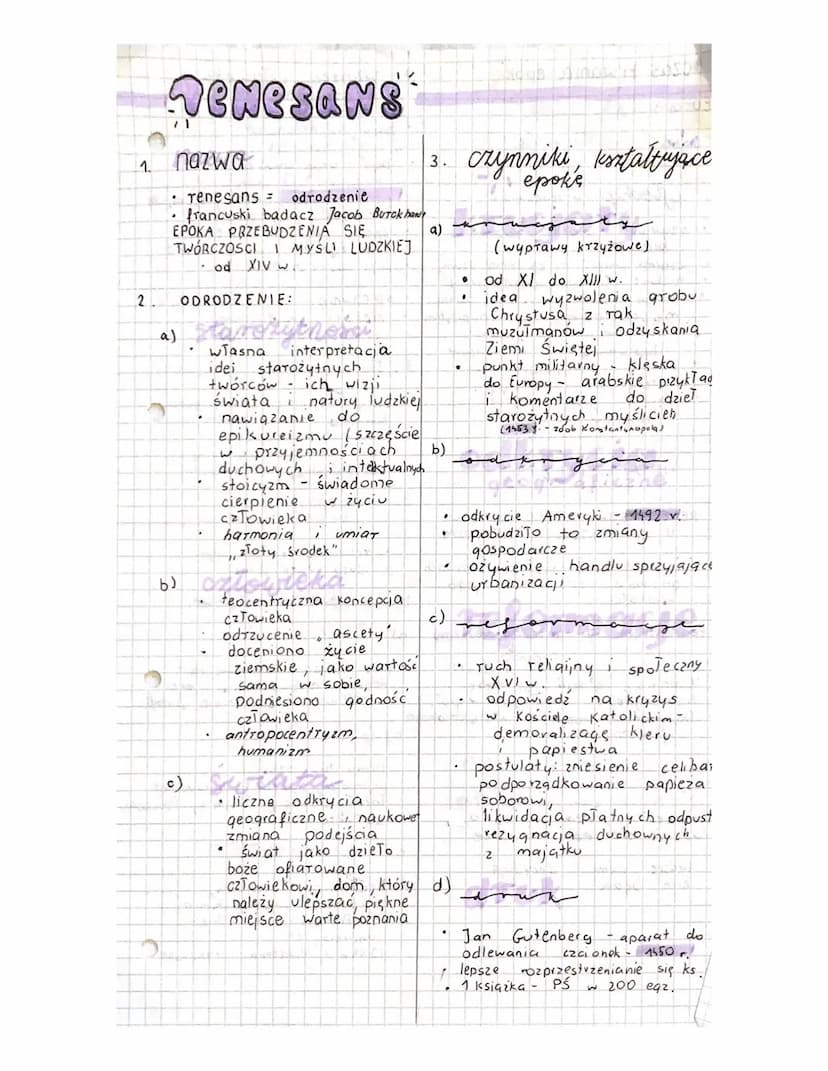 renesans
1. nazwa
• renesans = odrodzenie
• francuski badacz Jacob
EPOKA PRZEBUDZENIA SIĘ
TWÓRCZOSCI I MYSLI LUDZKIEJ
• od XIV w.
2. ODRODZENIE:
a) starożytności
• własna interpretacja
idei starożytnych
twórców - ich wizji
świata i natury ludzkiej
• nawiązanie do
epikureizmu (szczęście
w przyjemnościach
duchowych i intelektualnych
• stoicyzm - świadome
cierpienie w życiu
człowieka
• harmonia i umiar
„złoty środek"
b) człowieka
• teocentryczna koncepcja
człowieka
• odrzucenie „ascety"
• doceniono życie
ziemskie, jako wartość
sama w sobie,
podniesiono godność
człowieka
• antropocentryzm,
humanizm
c) świata
• liczne odkrycia
geograficzne i naukowe
zmiana podejścia
• świat jako dzieło
boże ofiarowane
człowiekowi, dom, który
należy ulepszać, piękne
miejsce warte poznania
3. czynniki, kształtujące
epokę
a) krucjaty
(wyprawy krzyżowe)
• od XI do XIII w.
• idea wyzwolenia grobu
Chrystusa z rąk
muzułmanów i odzyskania
Ziemi Świętej
• punkt militarny - klęska
do Europy - arabskie przykład
i komentarze do dzieł
starożytnych myślicieli
(1453 r. - zdob Konstantynopola)
b) odkrycia
geograficzne
• odkrycie Ameryki - 1492 r.
• pobudziło to zmiany
gospodarcze
• ożywienie handlu sprzyjające
urbanizacji
c) reformacje
• ruch religijny i społeczny
XVI w.
• odpowiedź na kryzys
w Kościele Katolickim -
demoralizagę kleru
i papiestwa
• postulaty: zniesienie celibat
podporządkowanie papieża
soborowi,
likwidacja płatnych odpust
rezygnacja duchownych
z majątku
d) druk
• Jan Gutenberg - aparat do
odlewania czcionek - 1450 r.
• lepsze rozprzestrzenianie się ks.
• 1 książka - PŚ w 200 egz.